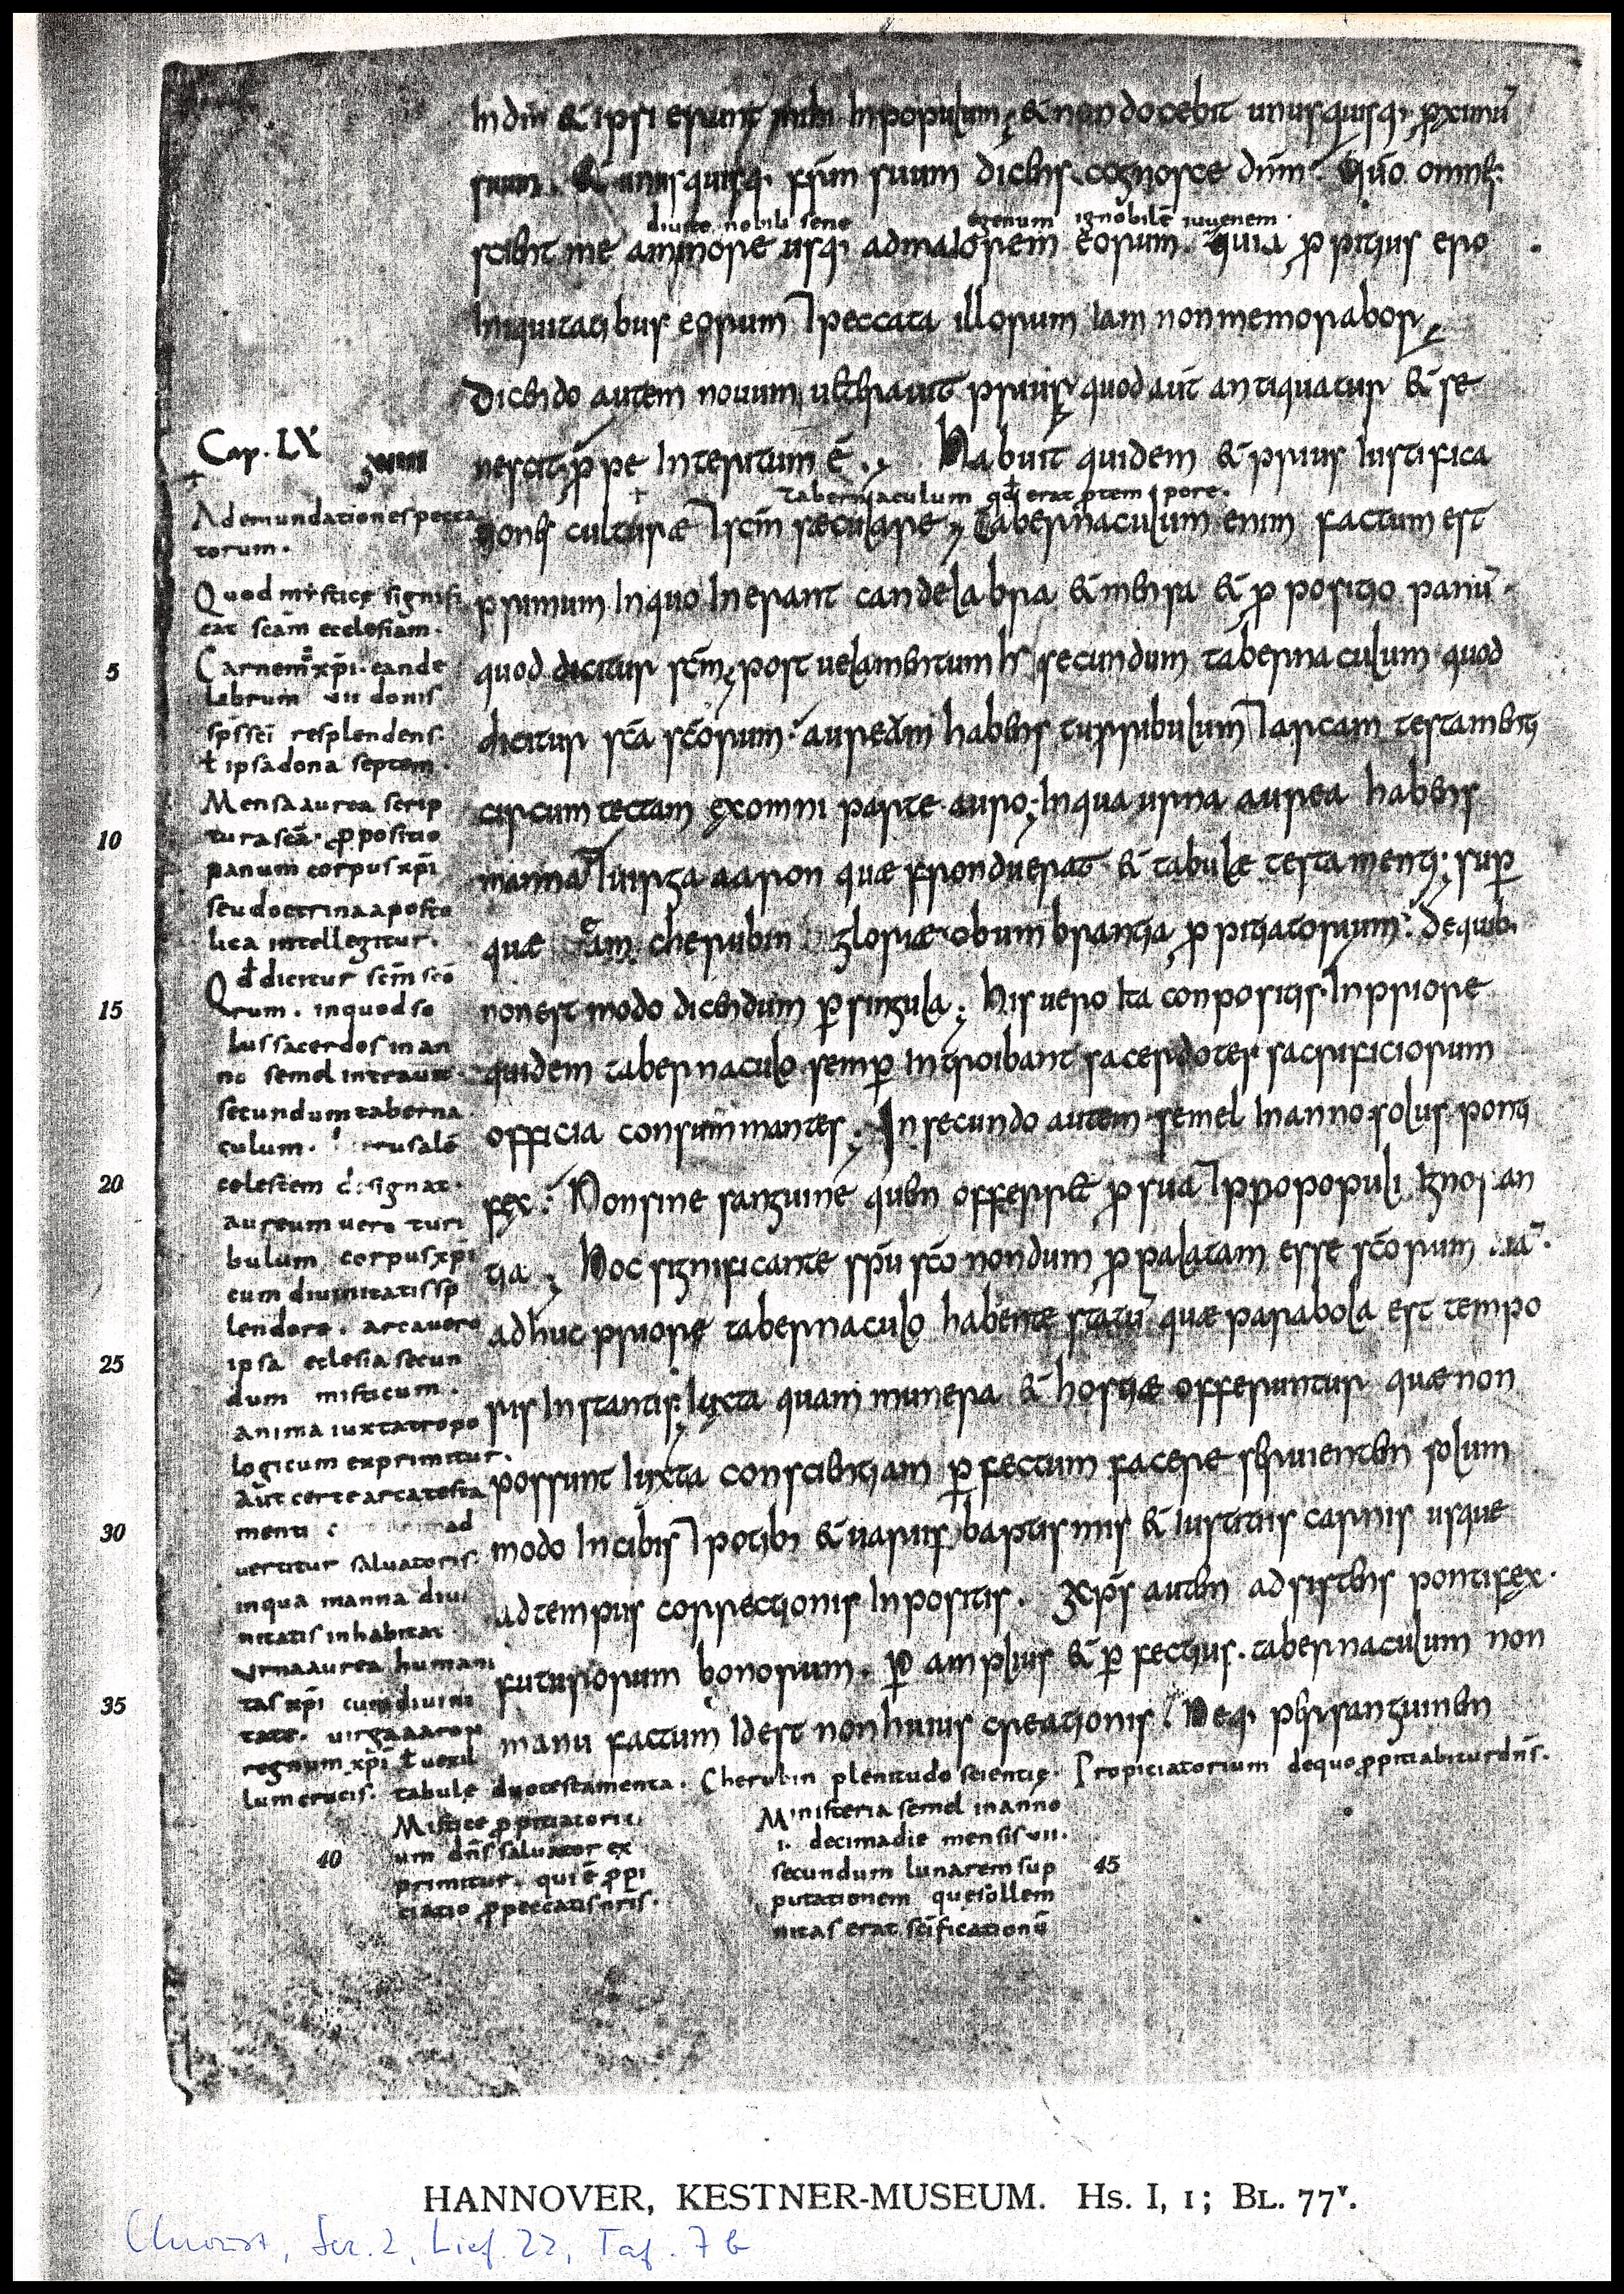 In dm̄ & ipsi erunt mihi In populum; & non docebit unusquisq· p̄ximū
suum. & unusquisq· frēm suum dicens. cognosce dnm̄. Quō omnes
diuite nobili sene egenum ignobilē iuuenem·
scient me aminore usq; admaiorem eorum. quia p̄pitius ero
Iniquitatibus eorum ⁊ peccata illorum Iam nonmemorabor;
Dicendo autem nouum ueterauit prius quod aut̄ antiquatur & se
nescit p̄pe Interitum ē.; Habuit quidem & prius Iustifica
tabernaculum qđ erat ptempore.
tiones culturæ ⁊ scm̄ sæculare; Tabernaculum enim factum est
primum In quo Inerant candelabra & mensa & p̄positio panū·
quod dicitur scm̄; post uelamentum secundum tabernaculum quod
dicitur scā scōrum. aureum habens turribulum ⁊ arcam testamenti
circum tectam ex omni parte auro; In qua urna aurea habens
manna ⁊ uirga aaron quæ fronduerat & tabulæ testamenti; sup̄
quæ eam cherubin gloriæ obumbrantia p̄pitiatorium. De quib·
non est modo dicendum p̄ singula; His uero Ita conpositis In priore
quidem tabernaculo semp̄ Introibant sacerdotes sacrificiorum
officia consummantes; In secundo autem semel In anno solus ponti
fex. Non sine sanguine quen offerret p̄ sua ⁊ p̄ populi Ignoran
tia; Hoc significante spū scō nondum p̄palatam esse scōrum uiā.
adhuc priore tabernaculo habente statū quæ parabola est tempo
ris Instantis; Iuxta quam munera & hostiæ offeruntur quæ non
possunt Iuxta conscientiam p̄fectum facere seruienten solum
modo In cibis ⁊ potib; & uariis baptismis & Iustitiis carnis usque
ad tempus correctionis Inpositis. Xps̄ auten adsistens pontifex·
futurorum bonorum. p̄ amplius & p̄fectius. tabernaculum non
manu factum Idest non huius creationis. Neq· per sanguinen
Cap. LX
Ad emundationes pecca
torum.
Quod mystice signifi
cat scām ecclesiam.
Carnem xp̄i. cande
labrum vii donis
sps̄ sci resplendens.
ł ipsa dona septem.
Mensa aurea scrip
tura scā. p̄positio
panum corpus xp̄i
seu doctrina aposto
lica intellegitur.
Qđ dicitur scm̄ scō
rum. in quod so
lus sacerdos in an
no semel intrauit.
secundum taberna
culum. rusalē
celestem designat.
aureum uero turi
bulum corpus xp̄i
cum diuinitatis sp
lendore. arca uero
ipsa eclesia secun
dum misticum.
anima iuxta tropo
logicum exprimitur.
Aut certe arca testa
menti ad
uertitur saluatoris.
in qua manna diui
nitatis inhabitat.
Vrna aurea humani
tas xp̄i cum diuini
tate. uirga aaron
regnum xp̄i ł uexil
lum crucis. tabule duo testamenta. Cherubin plenitudo scientię. Propiciatorium de quo p̄pitiabitur dn̄s.
Mistice p̄pitiatori
um dn̄s saluator ex
primitur. qui ē p̄pi
ciatio p̄ peccatis nr̄is.
Ministeria semel in anno
i. decima die mensis vii.
secundum lunarem sup
putationem que sollem
nitas erat sc̄ificationū
5
10
15
20
25
30
35
40
45
HANNOVER, KESTNER-MUSEUM. Hs. I, 1; Bl. 77ᵛ.
Chroust, Ser. 2, Lief. 22, Taf. 7 b